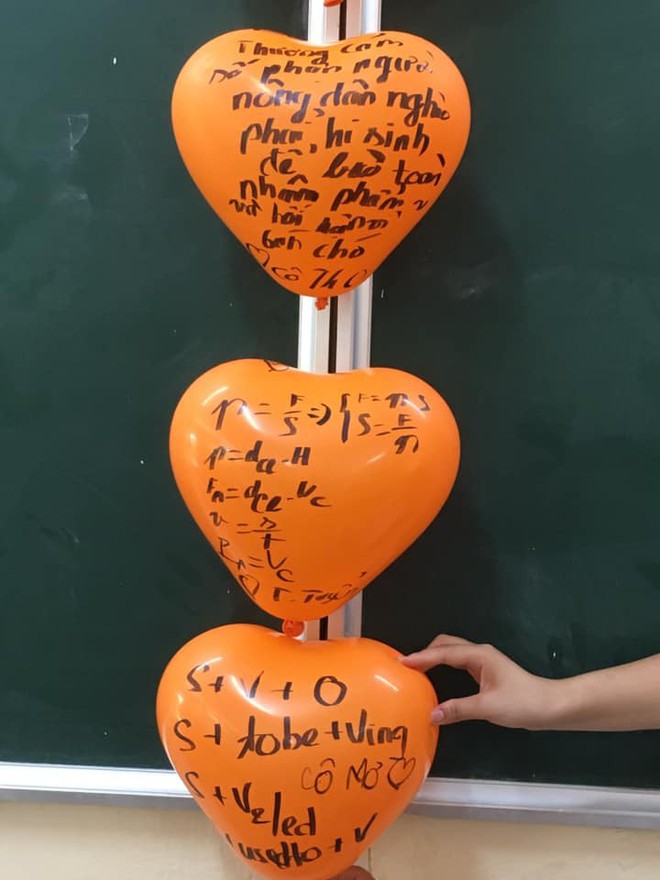 Thương cảm
số phận người
nông dân nghèo
phải hi sinh
để bảo toàn
nhân phẩm
và hối hận vì
bán chó
♡ Cô Th
p = F/S => { F = p.S
S = F/p
p = d . H
F = d . Vc
v = s/t
= Vc
♡ T.
S + V + O
S + tobe + Ving
CÔ MƠ ♡
S + V2/ed
usedto + V